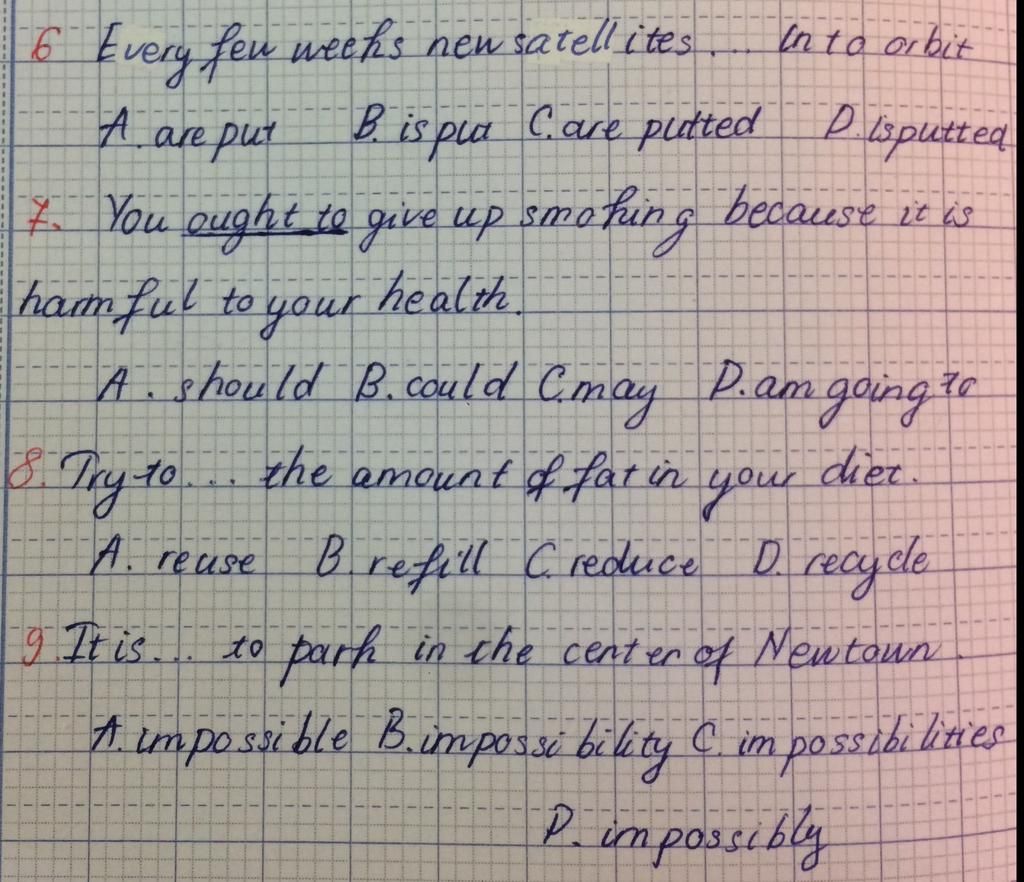 6 Every few weeks new satellites... into orbit
A. are put B. is put C. are putted D. is putted
7. You ought to give up smoking because it is
harmful to your health.
A. should B. could C. may D. am going to
8. Try to... the amount of fat in your diet.
A. reuse B. refill C. reduce D. recycle
9. It is... to park in the center of Newtown.
A. impossible B. impossibility C. impossibilities
D. impossibly